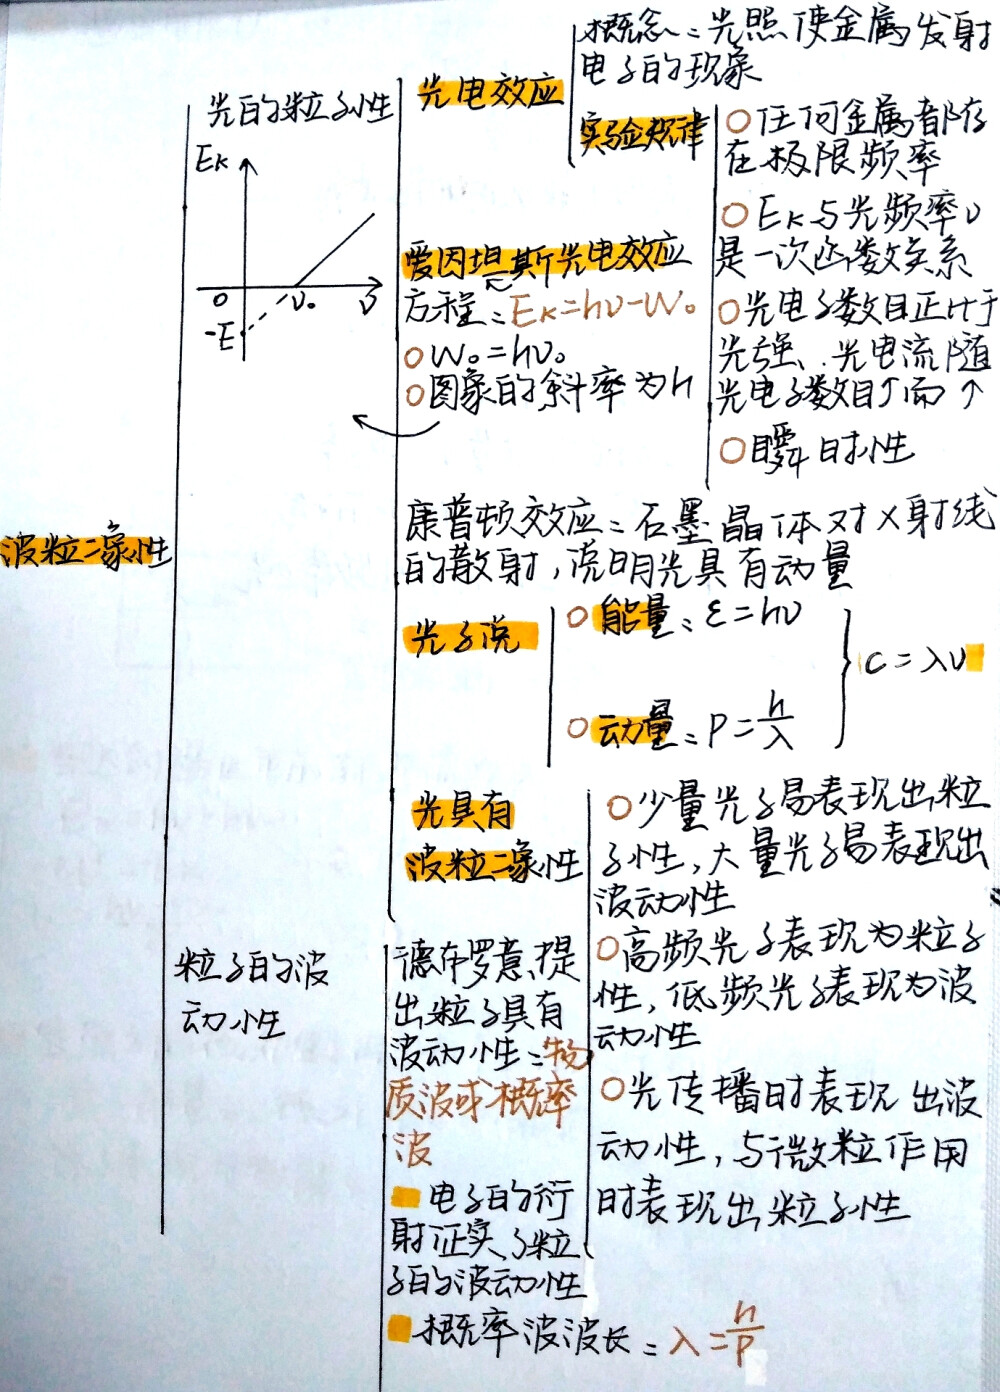 波粒二象性
光的粒子性
Eₖ
O
ν₀
ν
-E
光电效应
概念：光照使金属发射
电子的现象
实验规律
○任何金属都存
在极限频率
○Eₖ与光频率ν
是一次函数关系
○光电子数目正比于
光强、光电流随
光电子数目↑而↑
○瞬时性
爱因坦斯光电效应
方程：Eₖ=hν-W₀
○W₀=hν₀
○图象的斜率为h
康普顿效应：石墨晶体对X射线
的散射，说明光具有动量
光子说
○能量：ε=hν
○动量：P=h/λ
C=λν
光具有
波粒二象性
○少量光子易表现出粒
子性，大量光子易表现出
波动性
○高频光子表现为粒子
性，低频光子表现为波
动性
○光传播时表现出波
动性，与微粒作用
时表现出粒子性
粒子的波
动性
德布罗意提
出粒子具有
波动性：物
质波或概率
波
电子的衍
射证实了粒
子的波动性
概率波波长：λ=h/P